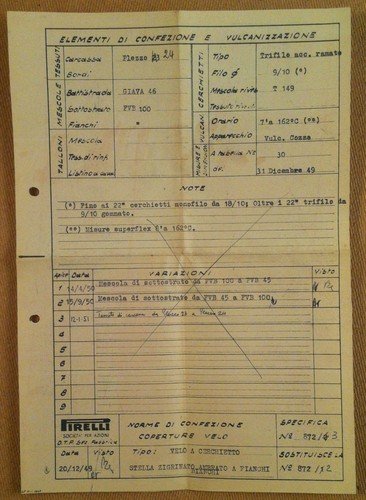 ELEMENTI DI CONFEZIONE E VULCANIZZAZIONE
MESCOLE TESSUTI
Carcassa Flezzo 23 24
Bordi
Battistrada GIAVA 46
Sottostrato FVB 100
Fianchi "
TALLONI
Mescola
Tess. di rinf.
Listino
CERCHIETTI
Tipo Trifilo acc. ramato
Filo Ø 9/10 (*)
Mescola rivest. T 149
Tessuto rivest.
VULCAN.
Orario 7'a 162°C (**)
Apparecchio Vulc. Cozza
MISURE E DIMENSIONI
A tabella Nº 30
di: 31 Dicembre 49
NOTE
(*) Fino ai 22" cerchietti monofilo da 18/10; Oltre i 22" trifilo da
9/10 gommato.
(**) Misure superflex 6'a 162°C.
VARIAZIONI
Data Visto
1 14/4/50 Mescola di sottostrato da FVB 100 a FVB 45
2 15/9/50 Mescola di sottostrato da FVB 45 a FVB 100
3 12-1-51
4
5
6
7
8
9
PIRELLI
SOCIETÀ PER AZIONI
Data Visto
20/12/49
NORME DI CONFEZIONE
COPERTURE VELO
TIPO: VELO A CERCHIETTO
STELLA ZIGRINATO AMBRATO A FIANCHI
BIANCHI
SPECIFICA
Nº 872/3
SOSTITUISCE LA
Nº 872/2